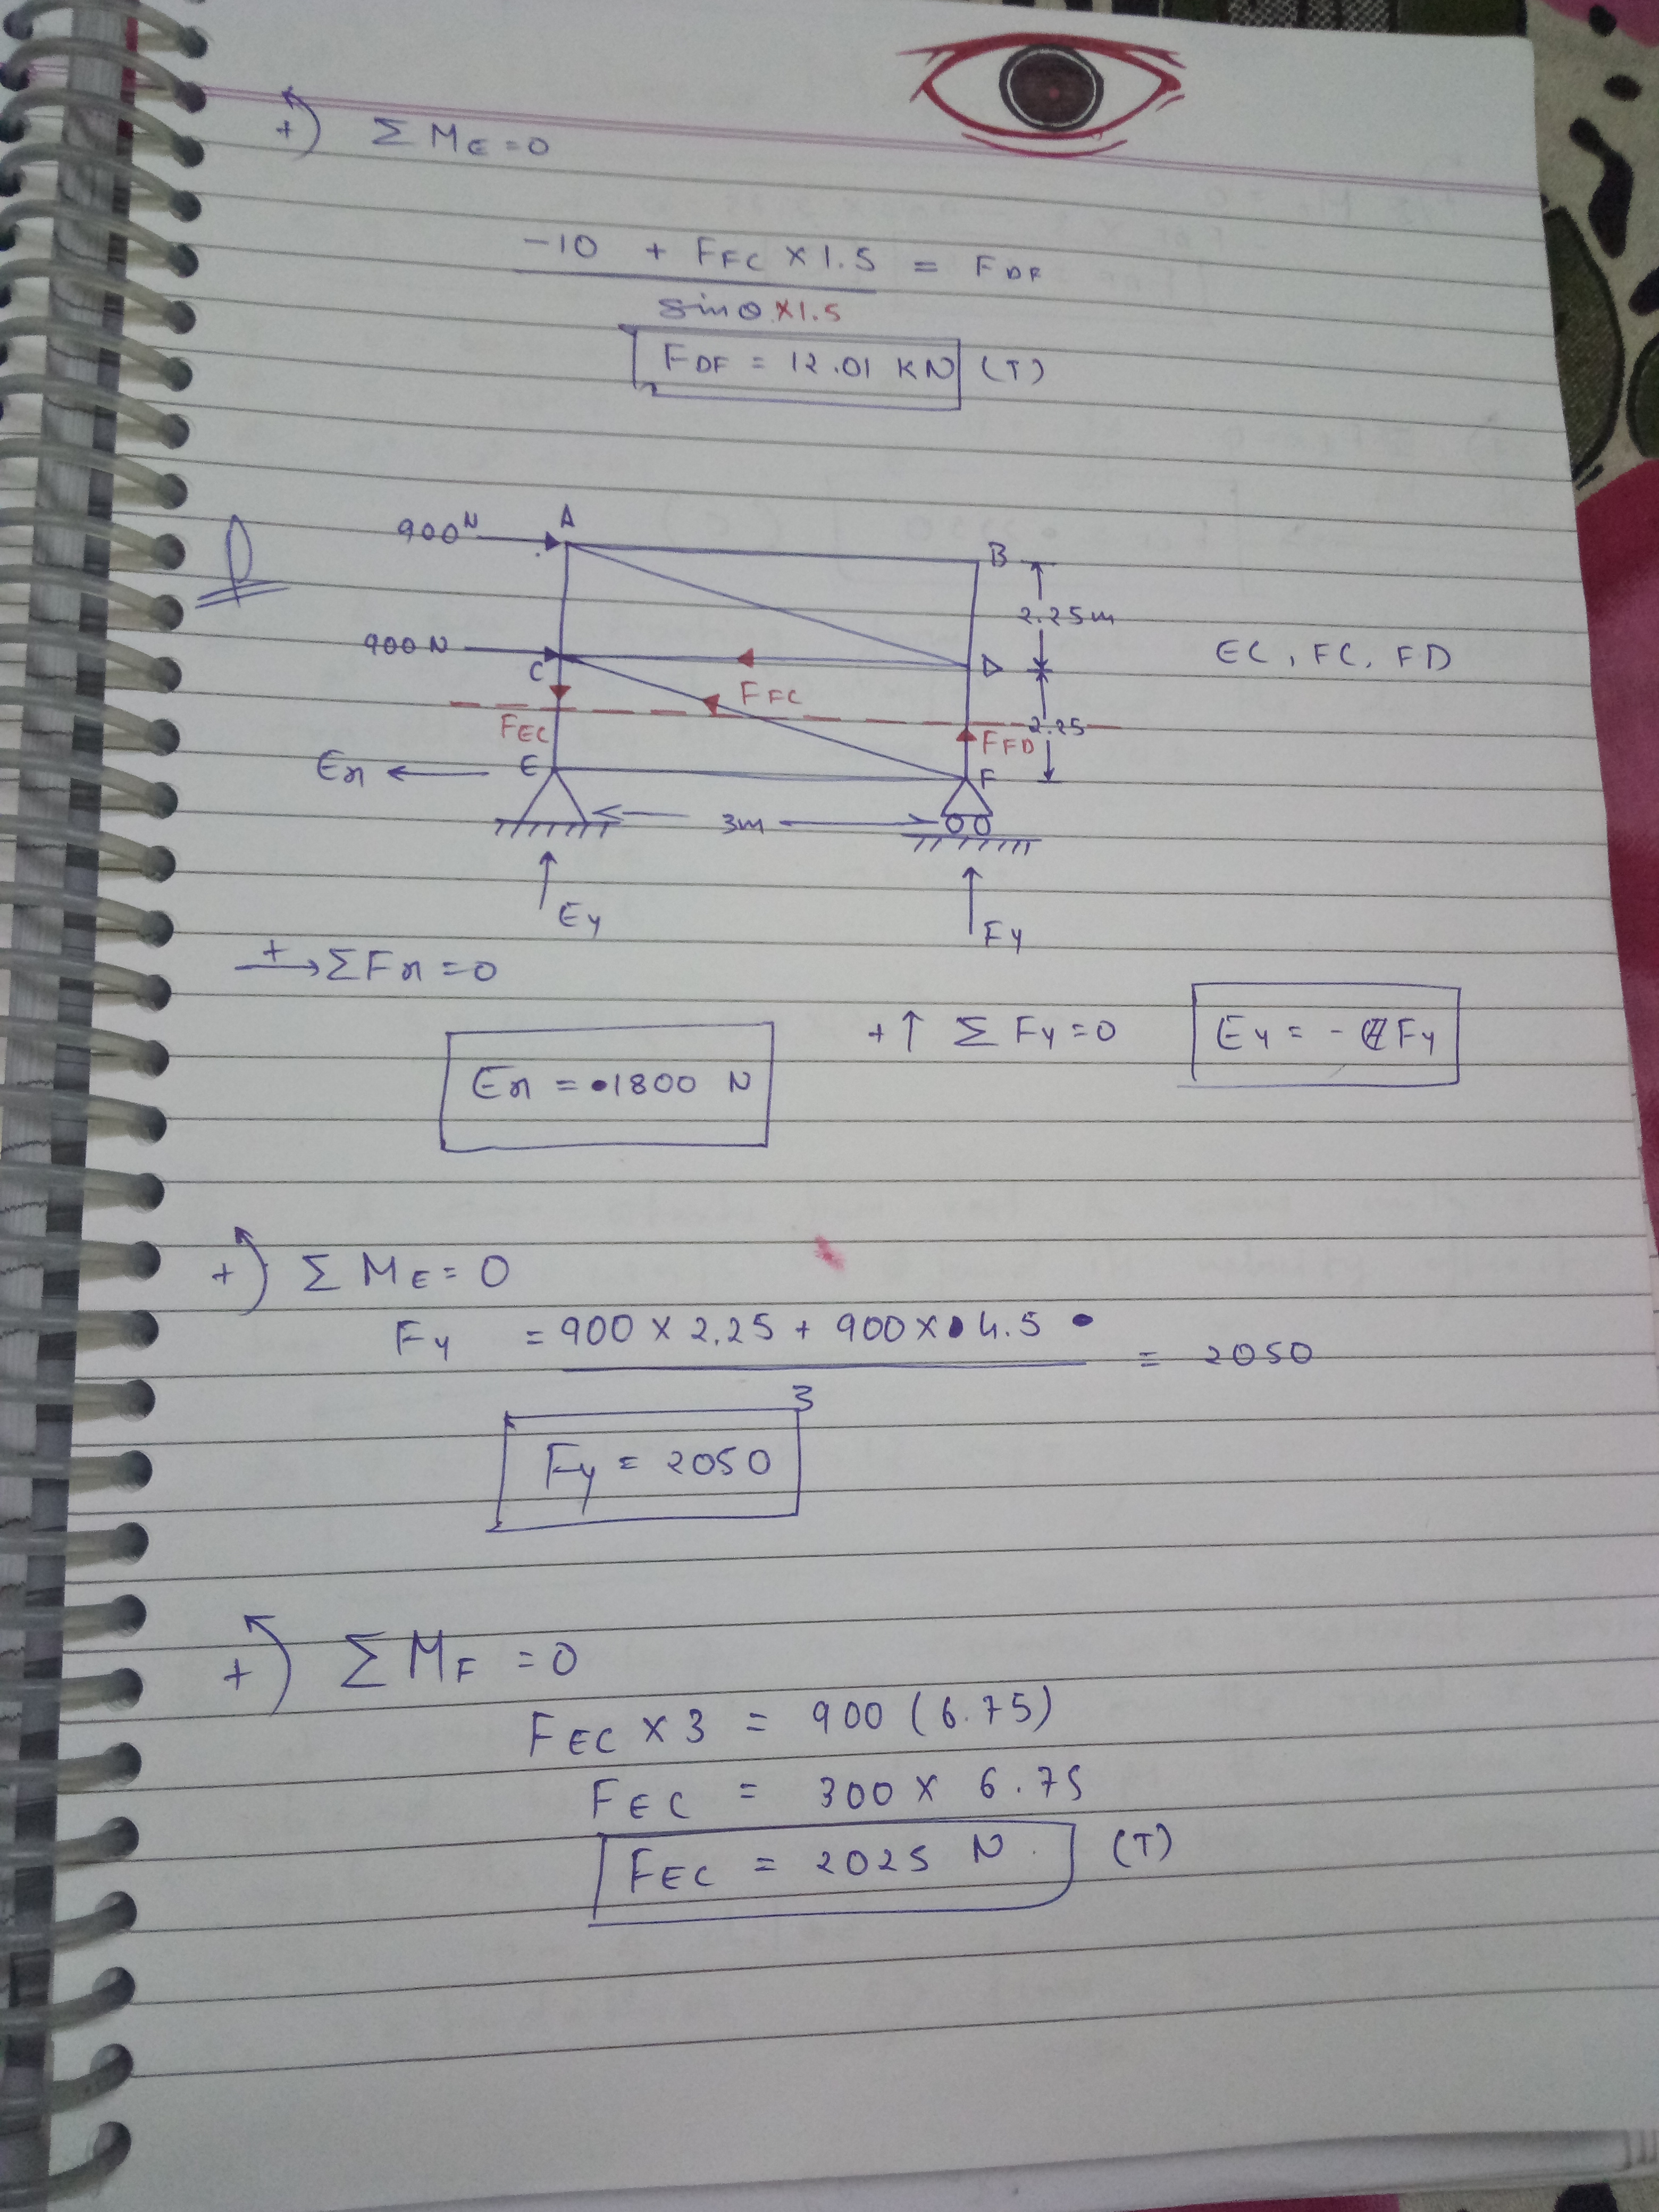 +) Σ M E = 0
-10 + F FC × 1.5 = F DF
sinθ × 1.5
F DF = 12.01 KN (T)
900 N A
B
2.25m
900 N C D
EC, FC, FD
F FC
F EC
2.25
F FD
Ex E F
3m
Ey
Fy
+ → Σ Fx = 0
+↑ Σ Fy = 0 Ey = - Fy
Ex = 1800 N
+) Σ M E = 0
Fy = 900 × 2.25 + 900 × 4.5 = 2050
3
Fy = 2050
+) Σ M F = 0
F EC × 3 = 900 (6.75)
F EC = 300 × 6.75
F EC = 2025 N (T)